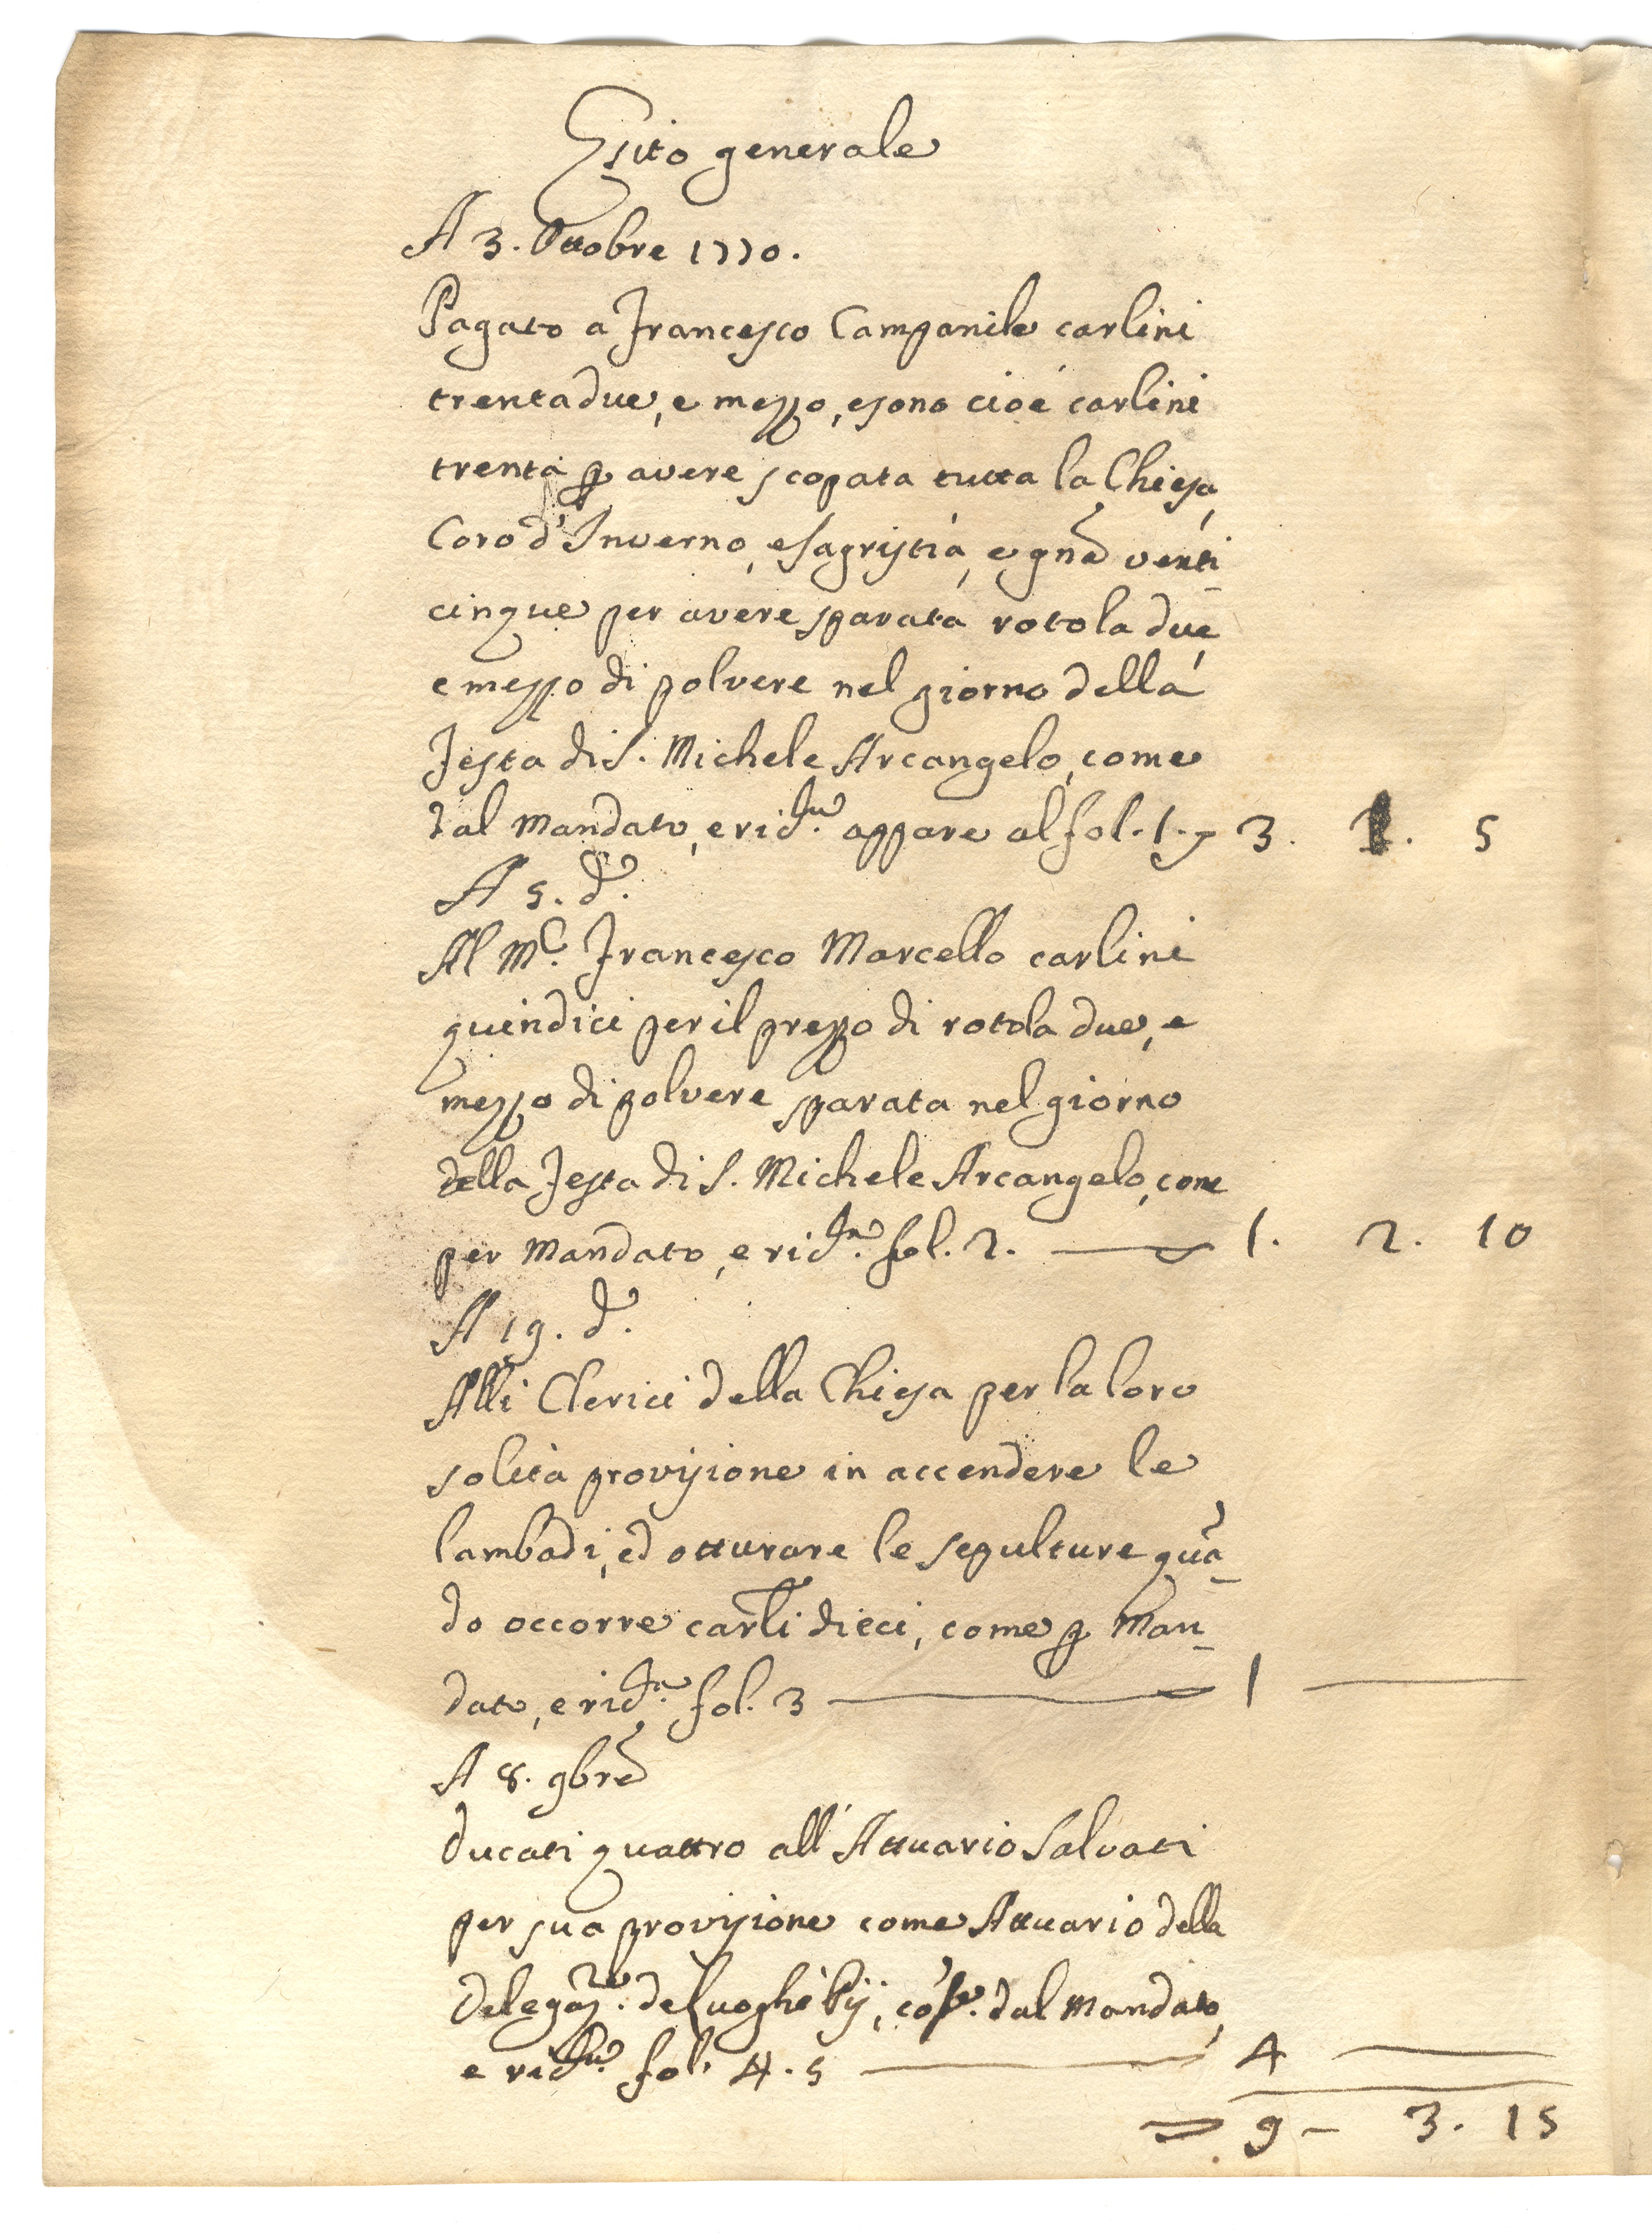 Esito generale
A 3. Ottobre 1770.
Pagato a Francesco Campanile carlini
trentadue, e mezzo, e sono cioè carlini
trenta p avere scopata tutta la Chiesa,
Coro d'Inverno, e Sagristia, e gna venti-
cinque per avere sparata rotola due,
e mezzo di polvere nel giorno della
Festa di S. Michele Arcangelo, come
dal Mandato, e ricta. appare al fol. 1. 3. 1. 5
A 5. do.
Al Mco. Francesco Marcello carlini
quindici per il prezzo di rotola due, e
mezzo di polvere sparata nel giorno
della Festa di S. Michele Arcangelo, come
per Mandato, e ricta. fol. 2. 1. 2. 10
A 19. do.
Alli Clerici della Chiesa per la loro
solita provisione in accendere le
lambadi, ed otturare le sepulture quā-
do occorre carli dieci, come p Man-
dato, e ricta. fol. 3 — 1 —
A 8. 9bre
Ducati quattro all'Attuario Salvati
per sua provisione come Attuario della
Delegaz.ne de luoghi Pij, dal Mandato,
e ricta. fol. 4. 5 — 4 —
= 9 - 3. 15